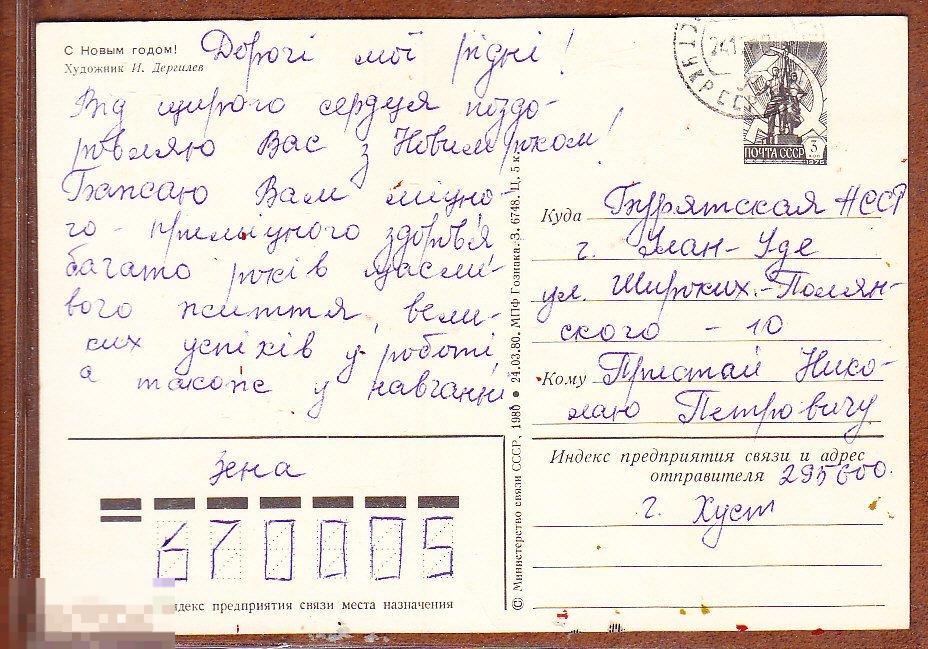 С Новым годом!
Художник И. Дергилев
Дорогі мої рідні!
Від щирого сердця поздо-
ровляю Вас з Новим роком!
Бажаю Вам міцно-
го-преміцного здоров'я
багато років щасли-
вого життя, вели-
ких успіхів у роботі
а також у навчанні
Зена
670005
индекс предприятия связи места назначения
© Министерство связи СССР, 1980 • 24.03.80. МПФ Гознака. З. 6748. Ц. 5 к
УКР ССР
ПОЧТА СССР
3 коп
Куда Бурятская АССР
г. Улан-Уде
ул. Широких-Полян-
ского - 10
Кому Пристай Нико-
лаю Петровичу
Индекс предприятия связи и адрес
отправителя 295600.
г. Хуст